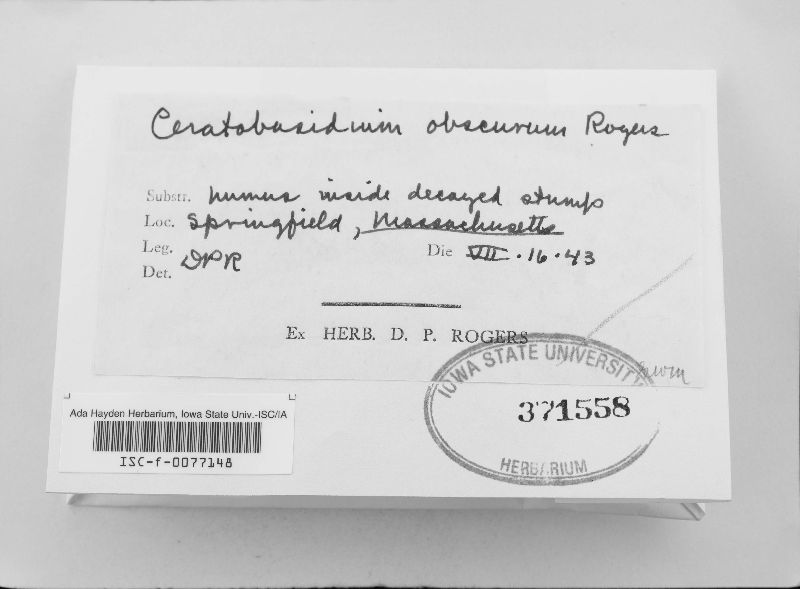 Ceratobasidium obscurum Rogers
Substr. humus inside decayed stumps
Loc. Springfield, Massachusetts
Leg. DPR
Det.
Die VIII.16.43
Ex HERB. D. P. ROGERS
IOWA STATE UNIVERSITY
371558
HERBARIUM
Ada Hayden Herbarium, Iowa State Univ.-ISC/IA
ISC-f-0077148